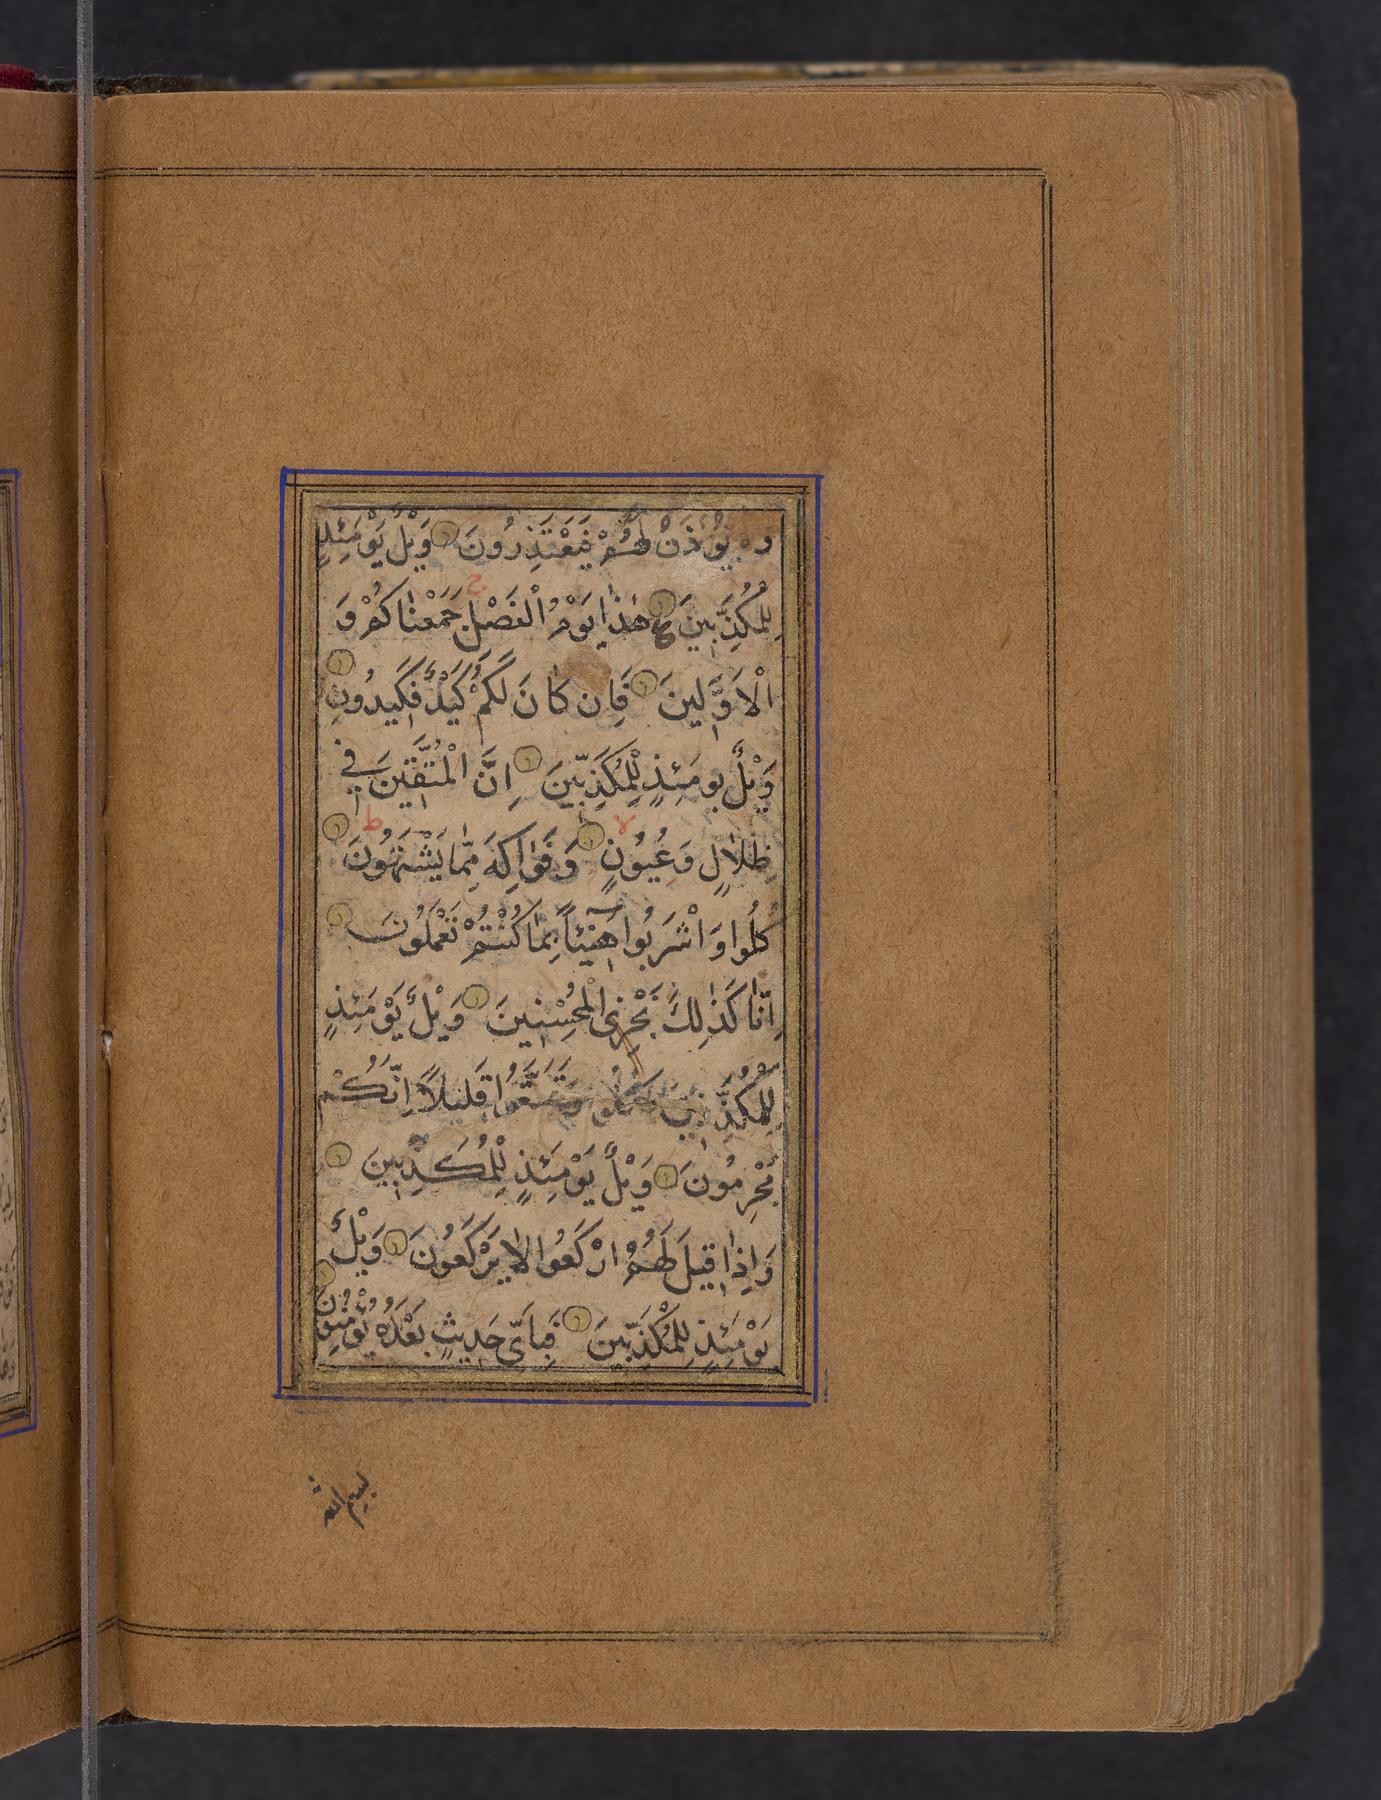 و يُؤْذَنُ لَهُمْ فَيَعْتَذِرُونَ وَيْلٌ يَوْمَئِذٍ
لِلْمُكَذِّبِينَ هٰذَا يَوْمُ الْفَصْلِ جَمَعْنَاكُمْ وَ
الْاَوَّلِينَ فَاِن كَانَ لَكُمْ كَيْدٌ فَكِيدُونِ
وَيْلٌ يومَئِذٍ لِلْمُكَذِّبِينَ اِنَّ الْمُتَّقِينَ فِي
ظِلَالٍ وَعُيُونٍ وَفَوَاكِهَ مِمَّا يَشْتَهُونَ
كُلُوا وَاشْرَبُوا هَنِيئاً بِمَا كُنْتُمْ تَعْمَلُونَ
اِنَّا كَذٰلِكَ نَجْزِي الْمُحْسِنِينَ وَيْلٌ يَوْمَئِذٍ
لِلْمُكَذِّبِينَ كُلُوا وَتَمَتَّعُوا قَلِيلًا اِنَّكُمْ
مُجْرِمُونَ وَيْلٌ يَوْمَئِذٍ لِلْمُكَذِّبِينَ
وَاِذَا قِيلَ لَهُمُ ارْكَعُوا لَا يَرْكَعُونَ وَيْلٌ
يَوْمَئِذٍ لِلْمُكَذِّبِينَ فَبِاَيِّ حَدِيثٍ بَعْدَهُ يُؤْمِنُونَ
بسم الله